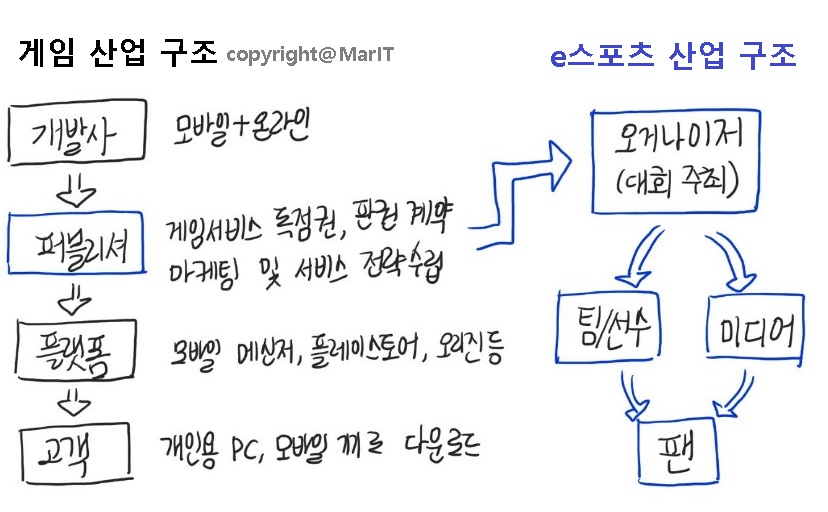 게임 산업 구조 copyright@MarIT
개발사 모바일+온라인
퍼블리셔 게임서비스 독점권, 판권 계약
마케팅 및 서비스 전략수립
플랫폼 모바일 메신저, 플레이스토어, 오리진등
고객 개인용 PC, 모바일 기기로 다운로드
e스포츠 산업 구조
오거나이저
(대회 주최)
팀/선수
미디어
팬